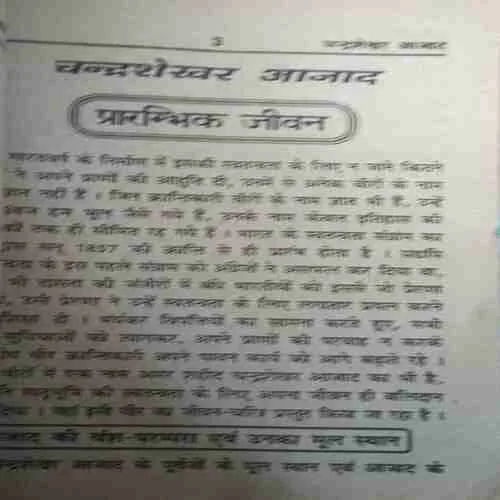 3 चन्द्रशेखर आजाद
चन्द्रशेखर आजाद
प्रारम्भिक जीवन
भारतवर्ष के निर्माण में इसकी स्वतन्त्रता के लिए न जाने कितने
ने अपने प्राणों की आहुति दी, उनमें से अनेक वीरों के नाम
ज्ञात नहीं हैं । जिन क्रान्तिकारी वीरों के नाम ज्ञात भी हैं, उन्हें
हम भूल जैसे गये हैं, उनके नाम केवल इतिहास की
तक ही सीमित रह गये हैं । भारत के स्वतन्त्रता संग्राम का
सन् 1857 की क्रान्ति से ही प्रारंभ होता है । यद्यपि
के इस पहले संग्राम को अंग्रेजों ने असफल कर दिया था,
की जंजीरों में बंधे भारतीयों को इससे जो प्रेरणा
उसी प्रेरणा ने उन्हें स्वतन्त्रता के लिए लगातार प्रयत्न करने
दी । भयंकर विपत्तियों का सामना करते हुए, सभी
सुविधाओं को त्यागकर, अपने प्राणों की परवाह न करके
वीर क्रान्तिकारी अपने पावन कार्य को आगे बढ़ाते रहे ।
वीरों में एक नाम अमर शहीद चन्द्रशेखर आजाद का भी है,
मातृभूमि की स्वतन्त्रता के लिए अपना जीवन ही बलिदान
दिया । यहाँ इसी वीर का जीवन-चरित प्रस्तुत किया जा रहा है ।
आजाद की वंश-परम्परा एवं उनका मूल स्थान
चन्द्रशेखर आजाद के पूर्वजों के मूल स्थान एवं आजाद के